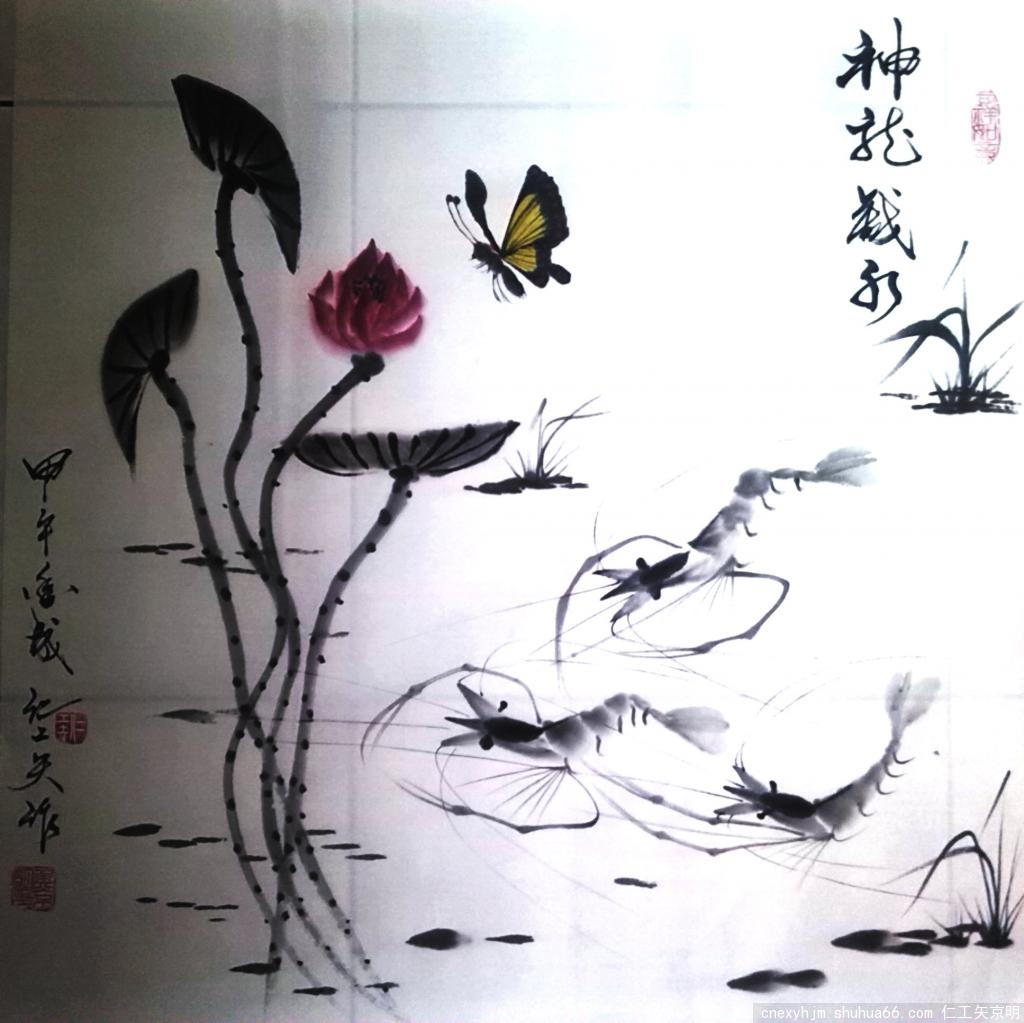 神龙戏水
甲午冬城仁工矢作
cnexyhjm.shuhua66.com 仁工矢京明